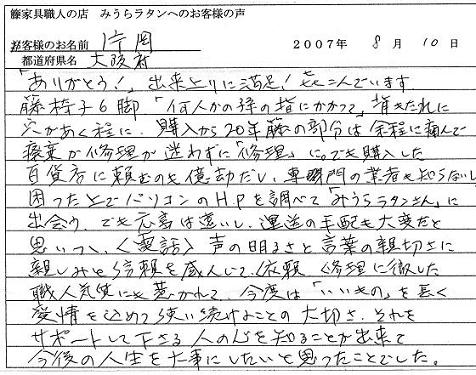 籐家具職人の店 みうらラタンへのお客様の声
お客様のお名前 片岡 2007年 8月 10日
都道府県名 大阪府
「ありがとう!」出来上りに満足! 喜こんでいます
藤椅子6脚「何人かの孫の指にかかって」背もたれに
穴があく程に、購入から20年藤の部分は余程に痛んで
廃棄か修理か迷わずに「修理」に。でも購入した
百貨店に頼むのも億劫だし、専門の業者も知らないし
困った上でパソコンのHPを調べて「みうらラタンさん」に
出会う でも元高は遠いし、運送の手配も大変だと
思いつつ、〈電話〉声の明るさと言葉の親切さに
親しみと信頼を感んじて、依頼 修理に徹した
職人気質にも惹かれて、今度は「いいもの」を長く
愛情を込めて使い続けることの大切さ、それを
サポートして下さる人の心を知ることが出来て
今後の人生を大事にしたいと思ったことでした。